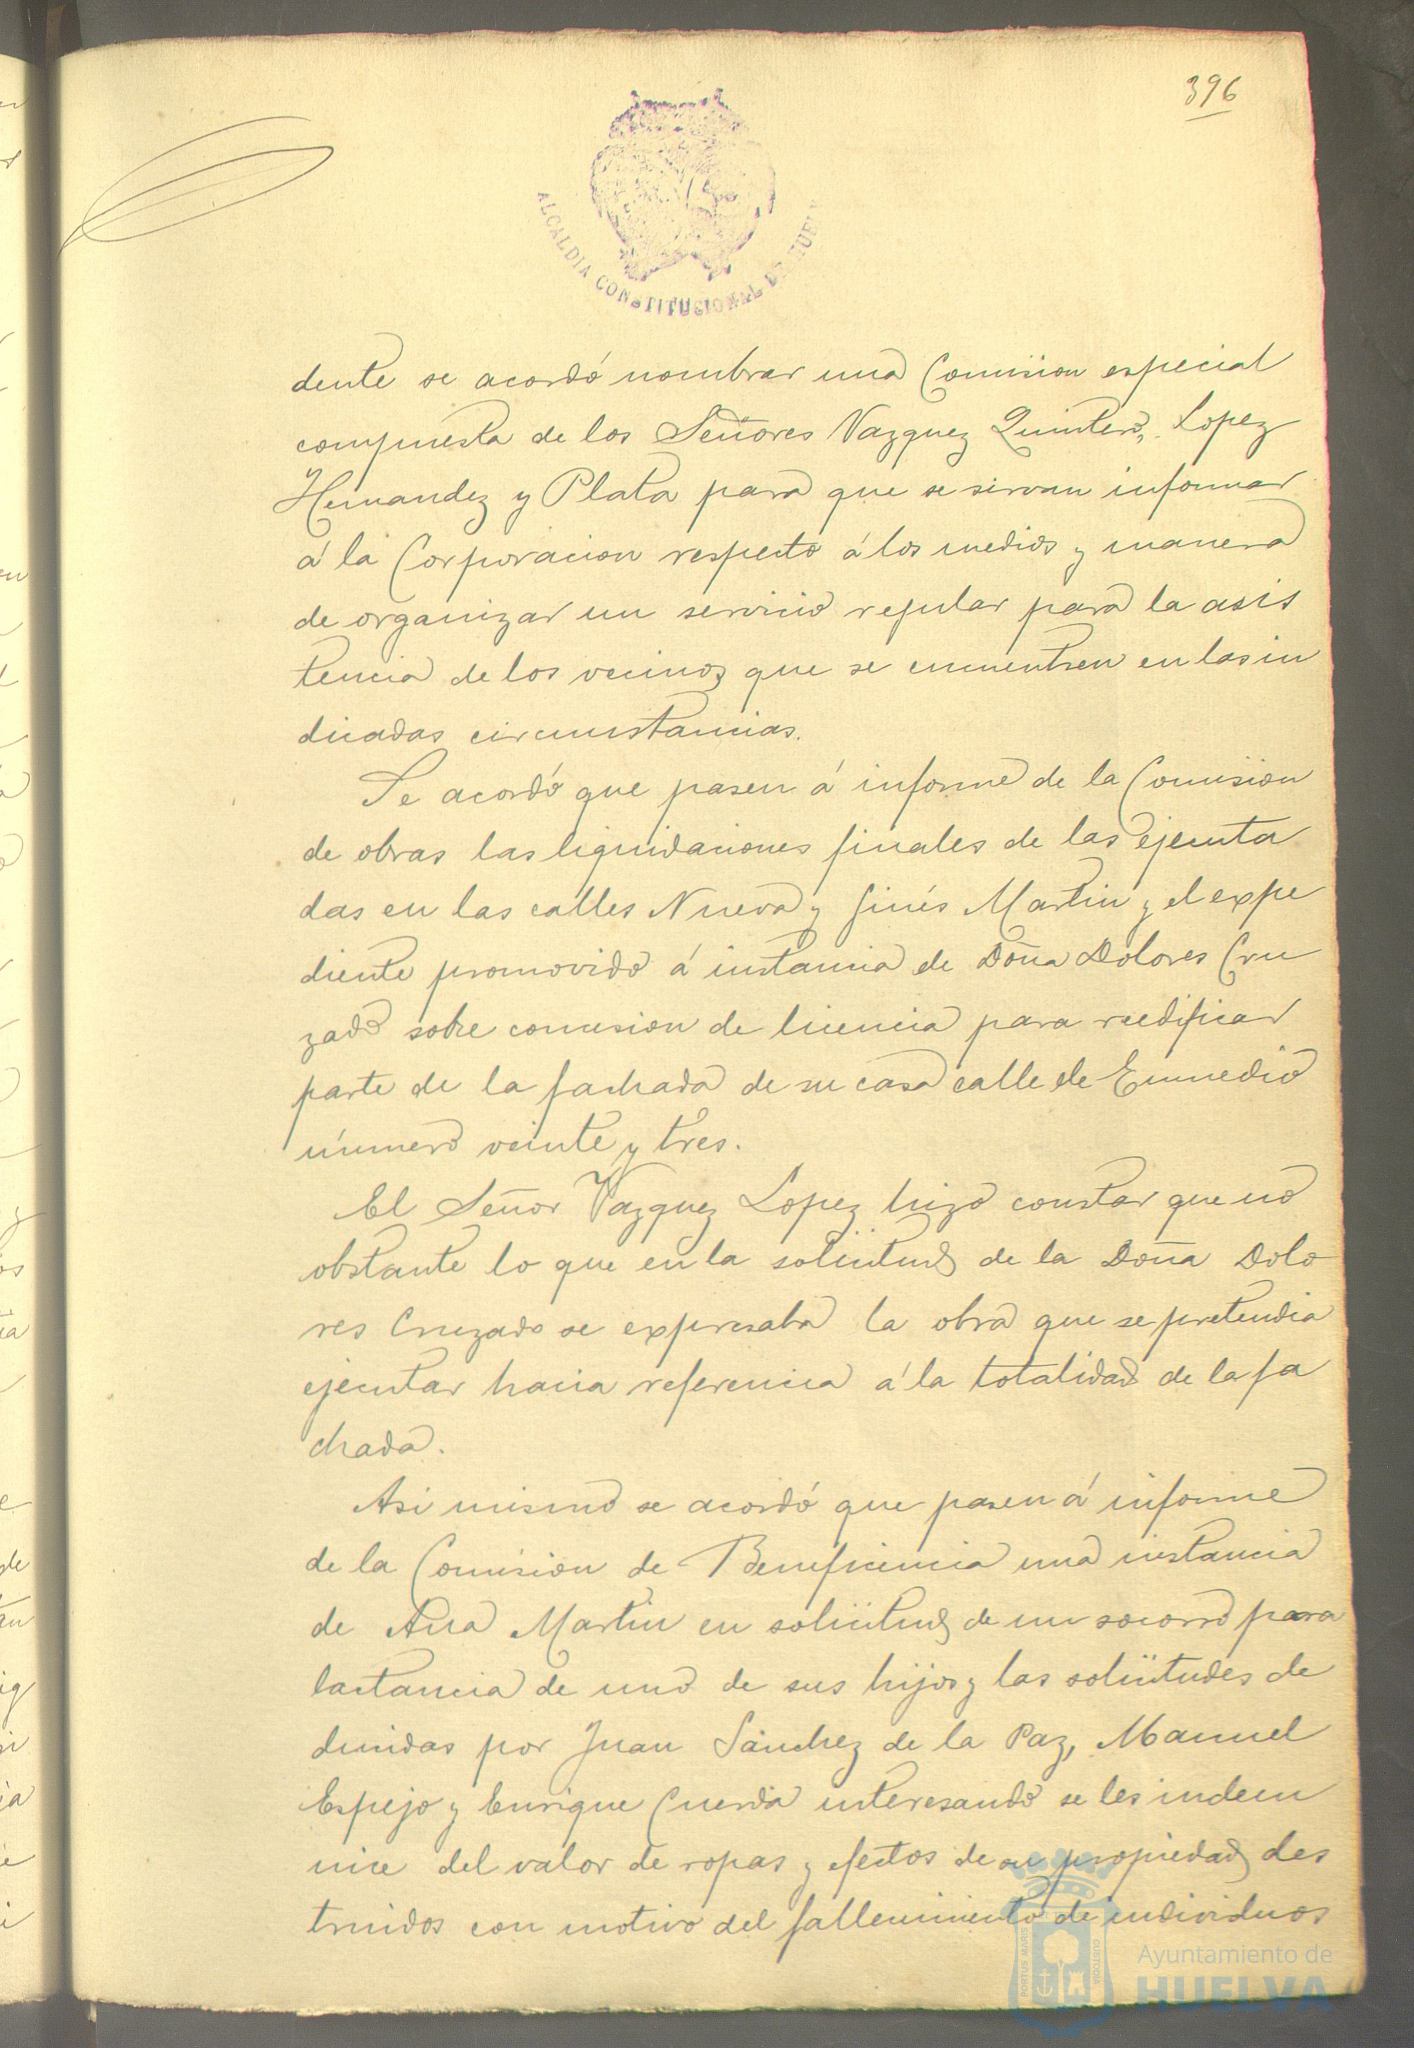 396
ALCALDIA CONSTITUCIONAL DE HUELVA
dente se acordó nombrar una Comision especial
compuesta de los Señores Vazquez Quintero, Lopez
Hernandez y Plata para que se sirvan informar
á la Corporacion respecto á los medios y manera
de organizar un servicio regular para la asis
tencia de los vecinos que se encuentren en las in
dicadas circunstancias.
Se acordó que pasen á informe de la Comision
de obras las liquidaciones finales de las ejecuta
das en las calles Nueva y Ginés Martin y el expe
diente promovido á instancia de Doña Dolores Cru
zado sobre concesion de licencia para reedificar
parte de la fachada de su casa calle de Enmedio
número veinte y tres.
El Señor Vazquez Lopez hizo constar que no
obstante lo que en la solicitud de la Doña Dolo
res Cruzado se expresaba la obra que se pretendia
ejecutar hacia referencia á la totalidad de la fa
chada.
Asi mismo se acordó que pasen á informe
de la Comision de Beneficencia una instancia
de Ana Martin en solicitud de un socorro para
lactancia de uno de sus hijos y las solicitudes de
ducidas por Juan Sánchez de la Paz, Manuel
Espejo y Enrique Cuerda interesando se les indem
nice del valor de ropas y efectos de su propiedad des
truidos con motivo del fallecimiento de individuos
PORTUS MARIS
CUSTODIA
Ayuntamiento de
HUELVA